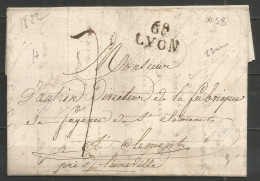 1822
68
LYON
7
Monsieur
Directeur de la fabrique
de fayence de St Clement
a St Clement
près Luneville